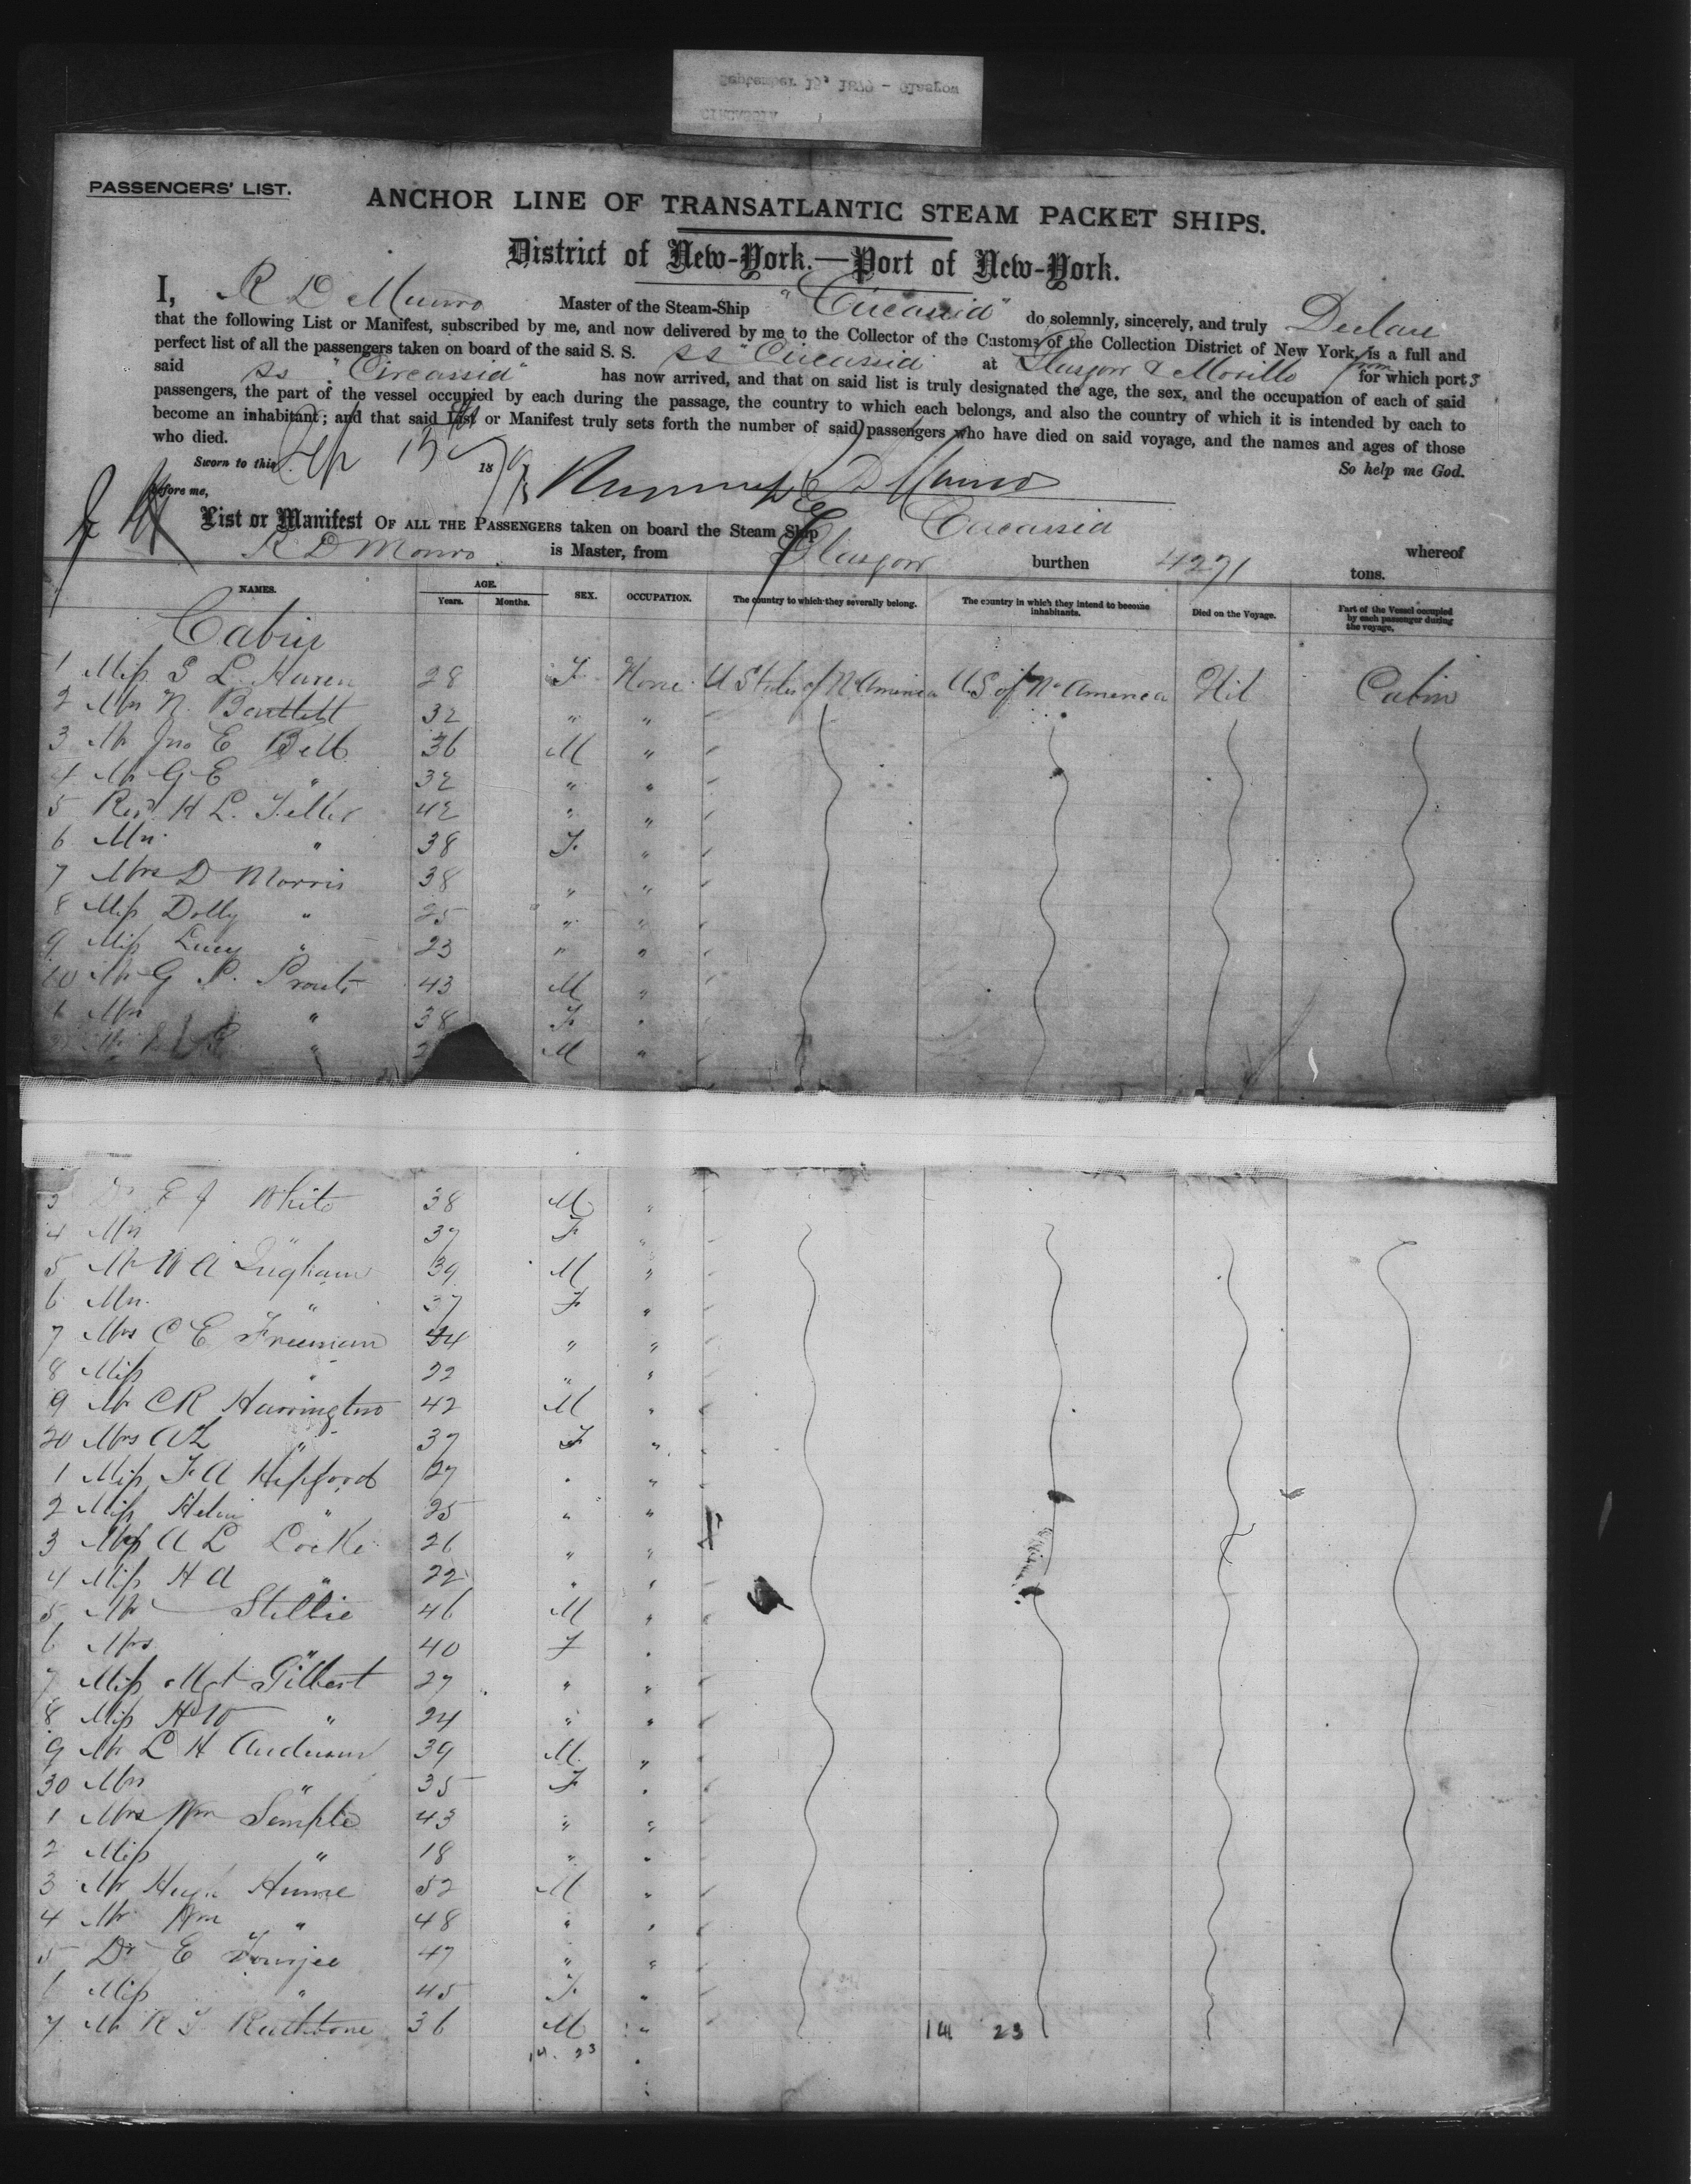 September 13, 1879 - Glasgow
CIRCASSIA
PASSENGERS' LIST.
ANCHOR LINE OF TRANSATLANTIC STEAM PACKET SHIPS.
District of New-York.—Port of New-York.
I, R D Munro Master of the Steam-Ship "Circassia" do solemnly, sincerely, and truly Declare
that the following List or Manifest, subscribed by me, and now delivered by me to the Collector of the Customs of the Collection District of New York, is a full and
perfect list of all the passengers taken on board of the said S. S. ss "Circassia at Glasgow & Moville from which port s
said ss "Circassia" has now arrived, and that on said list is truly designated the age, the sex, and the occupation of each of said
passengers, the part of the vessel occupied by each during the passage, the country to which each belongs, and also the country of which it is intended by each to
become an inhabitant; and that said List or Manifest truly sets forth the number of said passengers who have died on said voyage, and the names and ages of those
who died.
Sworn to this Sep 13 1879 D Munro So help me God.
Before me,
List or Manifest OF ALL THE PASSENGERS taken on board the Steam Ship Circassia whereof
R D Munro is Master, from Glasgow burthen 4271 tons.
NAMES. AGE. Years. Months. SEX. OCCUPATION. The country to which they severally belong. The country in which they intend to become inhabitants. Died on the Voyage. Part of the Vessel occupied by each passenger during the voyage.
Cabin
1 Miss S L. Haven 28 F None U States of No America U.S of No America Nil Cabin
2 Mrs N. Bartlett 32 " "
3 Mr Jno E Bell 36 M "
4 Mr G E " 32 " "
5 Revd H L. 42 " "
6 Mrs " 38 F "
7 Mrs D Morris 38 " "
8 Miss Dolly " 25 " "
9 Miss Lucy " 23 " "
10 Mr G P. Prouts 43 M "
1 Mrs " 38 F "
Mr " M "
3 Dr E J White 38 M "
4 Mrs " 37 F "
5 Mr W A Ingham 39 M "
6 Mrs " 37 F "
7 Mrs C E Freeman 44 " "
8 Miss " 22 " "
9 Mr C R Harrington 42 M "
20 Mrs A L " 37 F "
1 Miss F. A 27 " "
2 Miss Helen " 25 " "
3 Miss A L Locke 26 " "
4 Miss H A " 22 " "
5 Mr Stillie 46 M "
6 Mrs " 40 F "
7 Miss Mgt Gilbert 27 " "
8 Miss H W " 24 " "
9 Mr L H Anderson 39 M "
30 Mrs " 35 F "
1 Mrs Wm Semple 43 " "
2 Miss " 18 " "
3 Mr Hugh Hume 52 M "
4 Mr Wm " 48 " "
5 Dr E Tourjee 47 " "
6 Miss " 45 F "
7 Mr R Rathbone 36 M " 14 23
14. 23